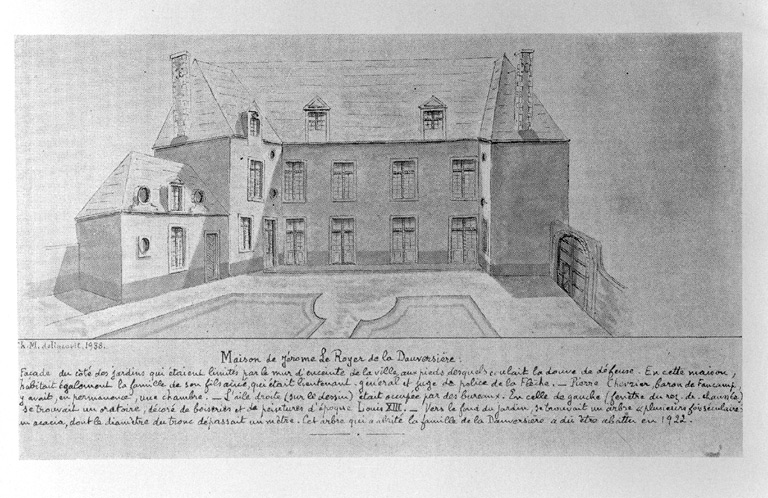 Ch. M. 1938.
Maison de Jérôme Le Royer de la Dauversière :
Façade du côté des jardins qui étaient limités par le mur d'enceinte de la ville, aux pieds desquels coulait la douve de défense. En cette maison,
habitait également la famille de son fils ainé, qui était lieutenant-général et juge de police de la Flèche. — Pierre Chevrier, baron de Fancamp,
y avait, en permanence, une chambre. — L'aile droite (sur le dessin) était occupée par des bureaux. En celle de gauche (fenêtre du rez-de-chaussée)
se trouvait un oratoire, décoré de boiseries et de peintures d'époque Louis XIII. — Vers le fond du jardin, se trouvait un arbre « plusieurs fois séculaire :
un acacia, dont le diamètre du tronc dépassait un mètre. Cet arbre qui a abrité la famille de la Dauversière a dû être abattu en 1922.